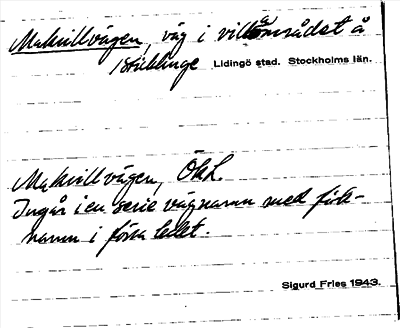 Makrillvägen, väg i villaområdet å
Bräklinge Lidingö stad. Stockholms län.
Makrillvägen, ÖkL.
Ingår i en serie vägnamn med fisk-
namn i förra ledet.
Sigurd Fries 1943.